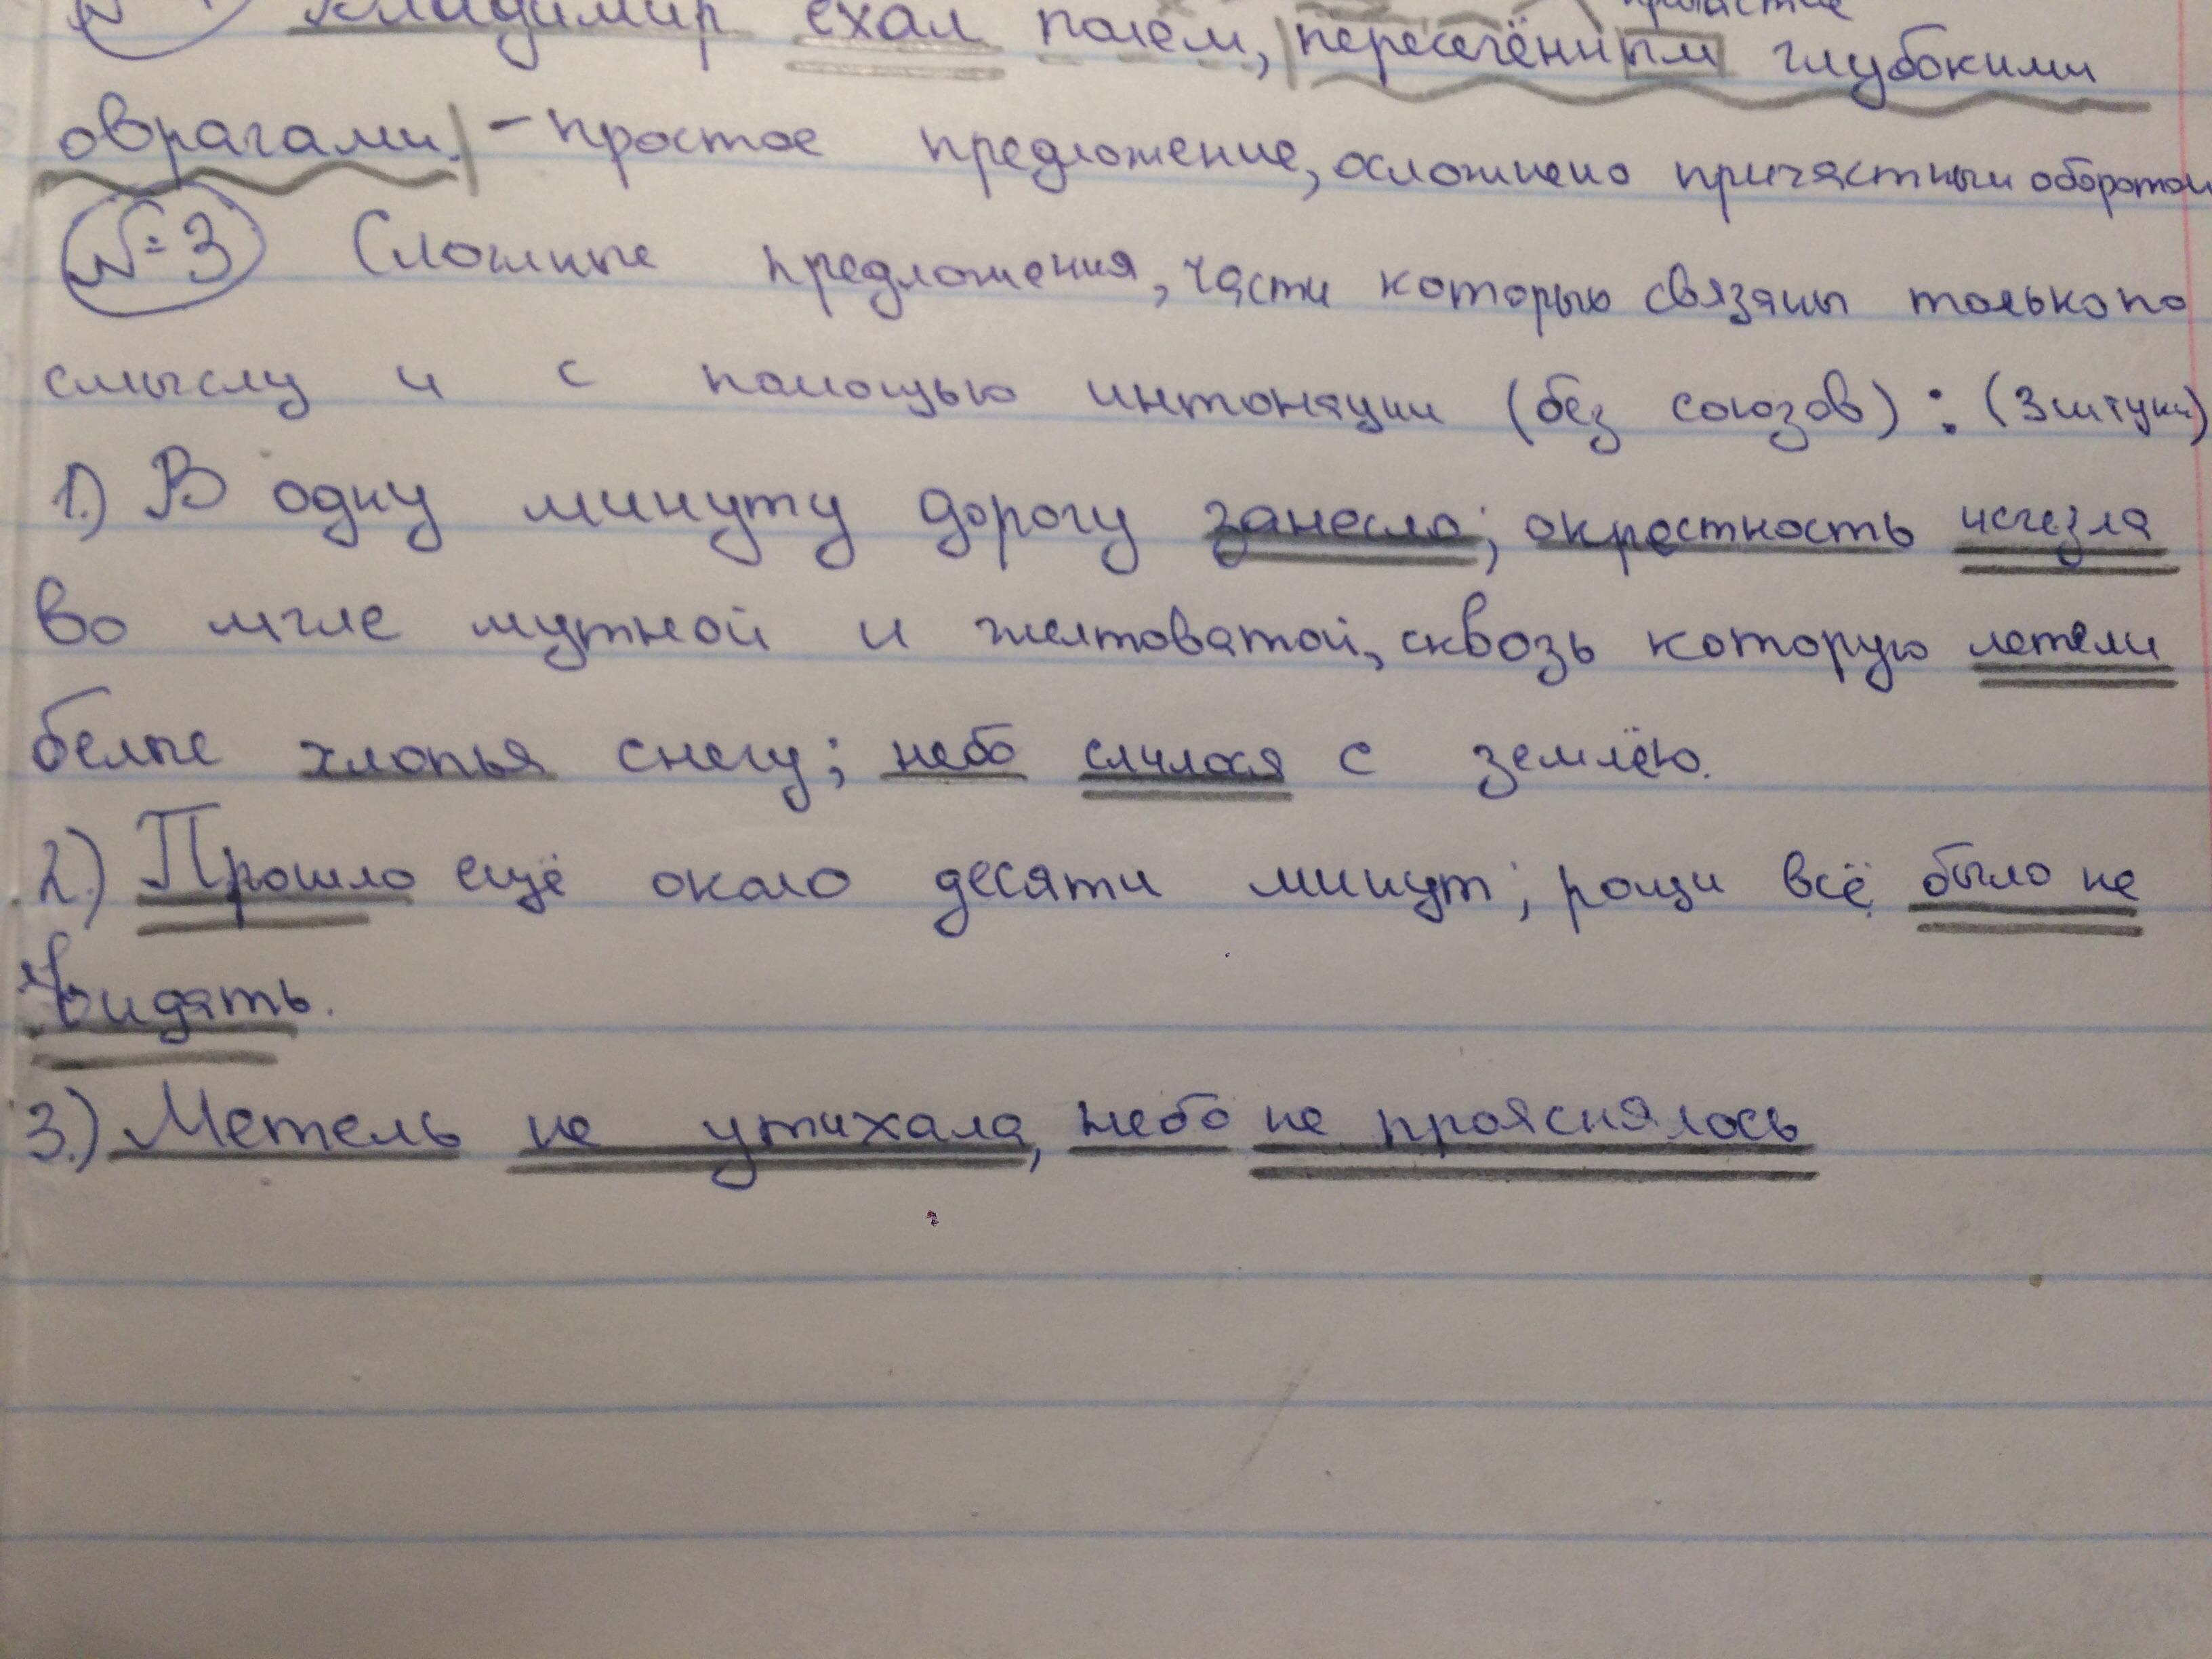 Владимир ехал полем, пересечённым глубокими
оврагами. - простое предложение, осложнено причастным оборотом
№3 Сложные предложения, части которых связаны только по
смыслу и с помощью интонации (без союзов): (3 штуки)
1.) В одну минуту дорогу занесло; окрестность исчезла
во мгле мутной и желтоватой, сквозь которую летели
белые хлопья снегу; небо слилося с землёю.
2.) Прошло ещё около десяти минут; рощи всё было не
видать.
3.) Метель не утихала, небо не прояснялось